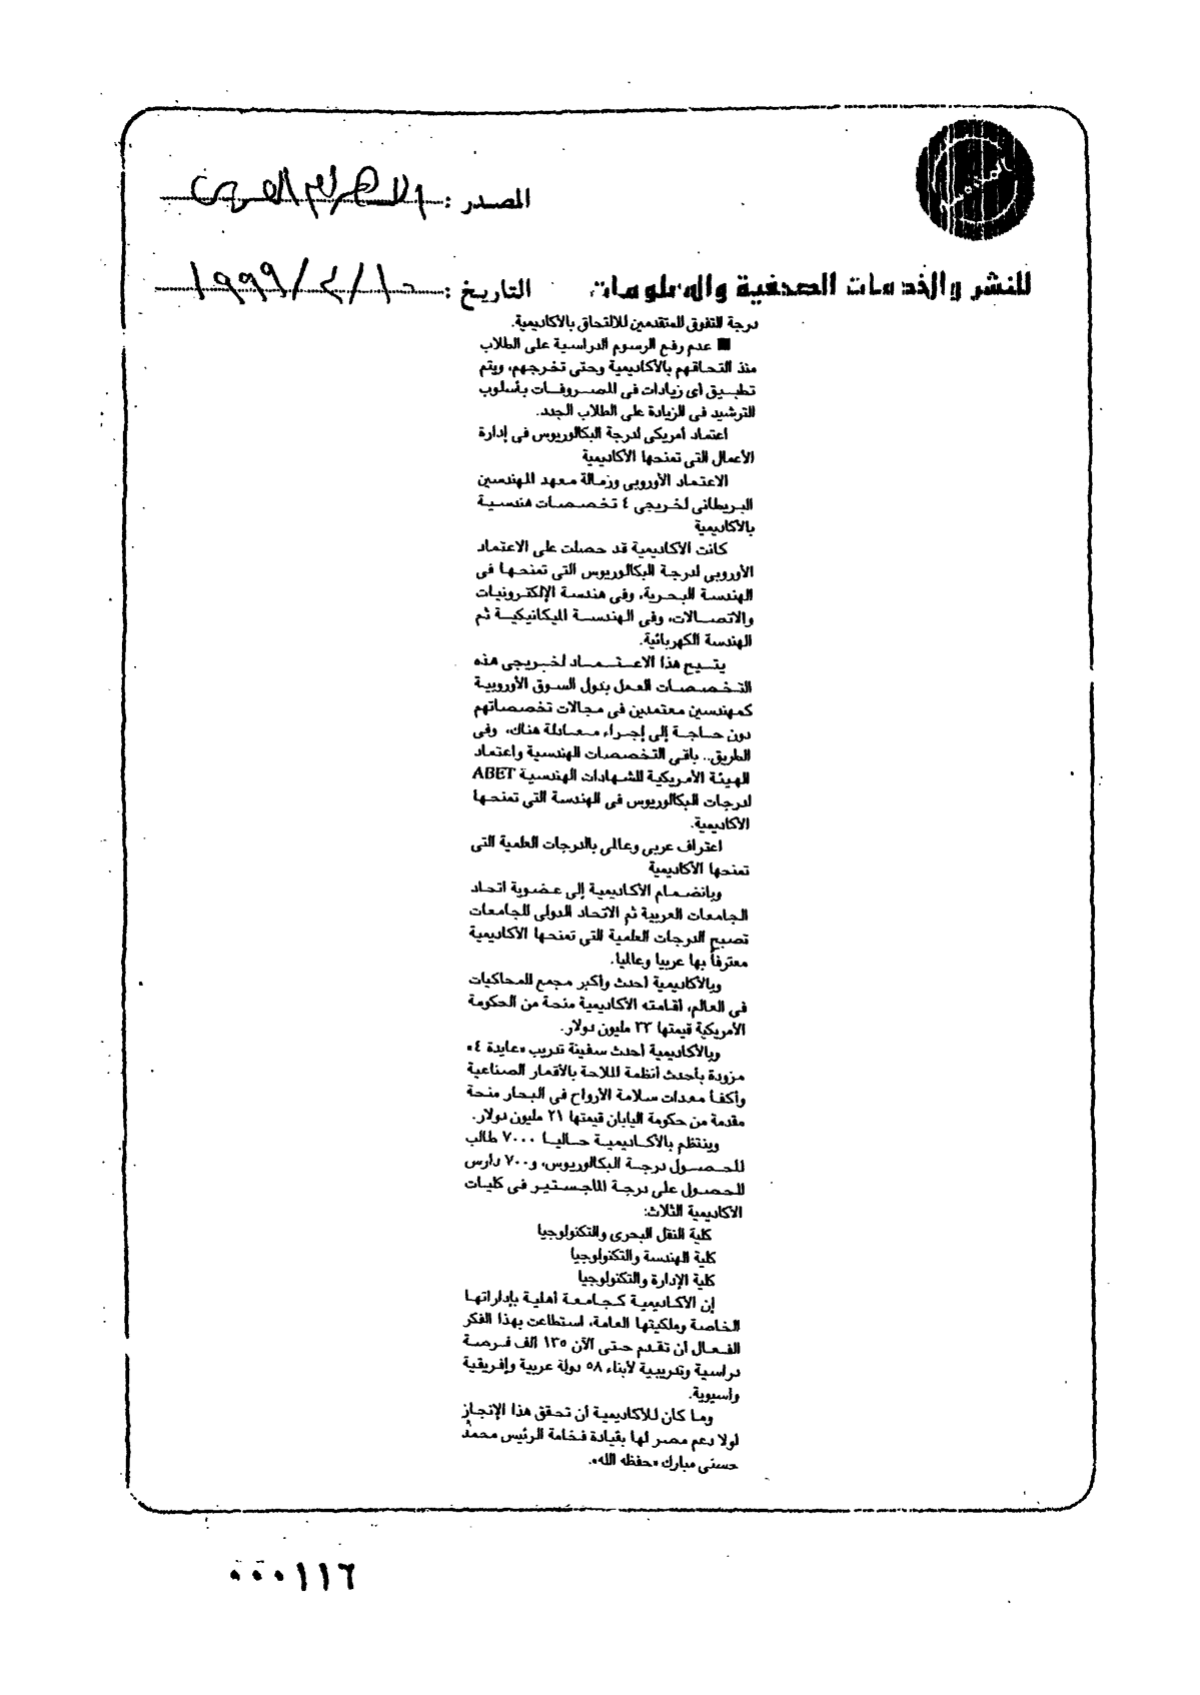 المصدر : الأهرام العربى
للنشر والخدمات الصحفية والمعلومات التاريخ : ١٠/٤/١٩٩٩
درجة التفوق للمتقدمين للالتحاق بالأكاديمية.
■ عدم رفع الرسوم الدراسية على الطلاب
منذ التحاقهم بالأكاديمية وحتى تخرجهم، ويتم
تطبيق أى زيادات فى المصروفات بأسلوب
الترشيد فى الزيادة على الطلاب الجدد.
اعتماد أمريكى لدرجة البكالوريوس فى إدارة
الأعمال التى تمنحها الأكاديمية
الاعتماد الأوروبى وزمالة معهد المهندسين
البريطانى لخريجى ٤ تخصصات هندسية
بالأكاديمية
كانت الأكاديمية قد حصلت على الاعتماد
الأوروبى لدرجة البكالوريوس التى تمنحها فى
الهندسة البحرية، وفى هندسة الإلكترونيات
والاتصالات، وفى الهندسة الميكانيكية ثم
الهندسة الكهربائية.
يتيح هذا الاعتماد لخريجى هذه
التخصصات العمل بدول السوق الأوروبية
كمهندسين معتمدين فى مجالات تخصصاتهم
دون حاجة إلى إجراء معادلة هناك، وفى
الطريق.. باقى التخصصات الهندسية واعتماد
الهيئة الأمريكية للشهادات الهندسية ABET
لدرجات البكالوريوس فى الهندسة التى تمنحها
الأكاديمية.
اعتراف عربى وعالمى بالدرجات العلمية التى
تمنحها الأكاديمية
وبانضمام الأكاديمية إلى عضوية اتحاد
الجامعات العربية ثم الاتحاد الدولى للجامعات
تصبح الدرجات العلمية التى تمنحها الأكاديمية
معترفاً بها عربيا وعالميا.
وبالأكاديمية أحدث وأكبر مجمع للمحاكيات
فى العالم، أقامته الأكاديمية منحة من الحكومة
الأمريكية قيمتها ٢٣ مليون دولار.
وبالأكاديمية أحدث سفينة تدريب «عايدة ٤»
مزودة بأحدث أنظمة الملاحة بالأقمار الصناعية
وأكفأ معدات سلامة الأرواح فى البحار منحة
مقدمة من حكومة اليابان قيمتها ٢١ مليون دولار.
وينتظم بالأكاديمية حاليا ٧٠٠٠ طالب
للحصول درجة البكالوريوس، و٧٠٠ دارس
للحصول على درجة الماجستير فى كليات
الأكاديمية الثلاث:
كلية النقل البحرى والتكنولوجيا
كلية الهندسة والتكنولوجيا
كلية الإدارة والتكنولوجيا
إن الأكاديمية كجامعة أهلية بإداراتها
الخاصة وملكيتها العامة، استطاعت بهذا الفكر
الفعال أن تقدم حتى الآن ١٣٥ ألف فرصة
دراسية وتدريبية لأبناء ٥٨ دولة عربية وإفريقية
وآسيوية.
وما كان للأكاديمية أن تحقق هذا الإنجاز
لولا دعم مصر لها بقيادة فخامة الرئيس محمد
حسنى مبارك «حفظه الله».
٠٠٠١١٦